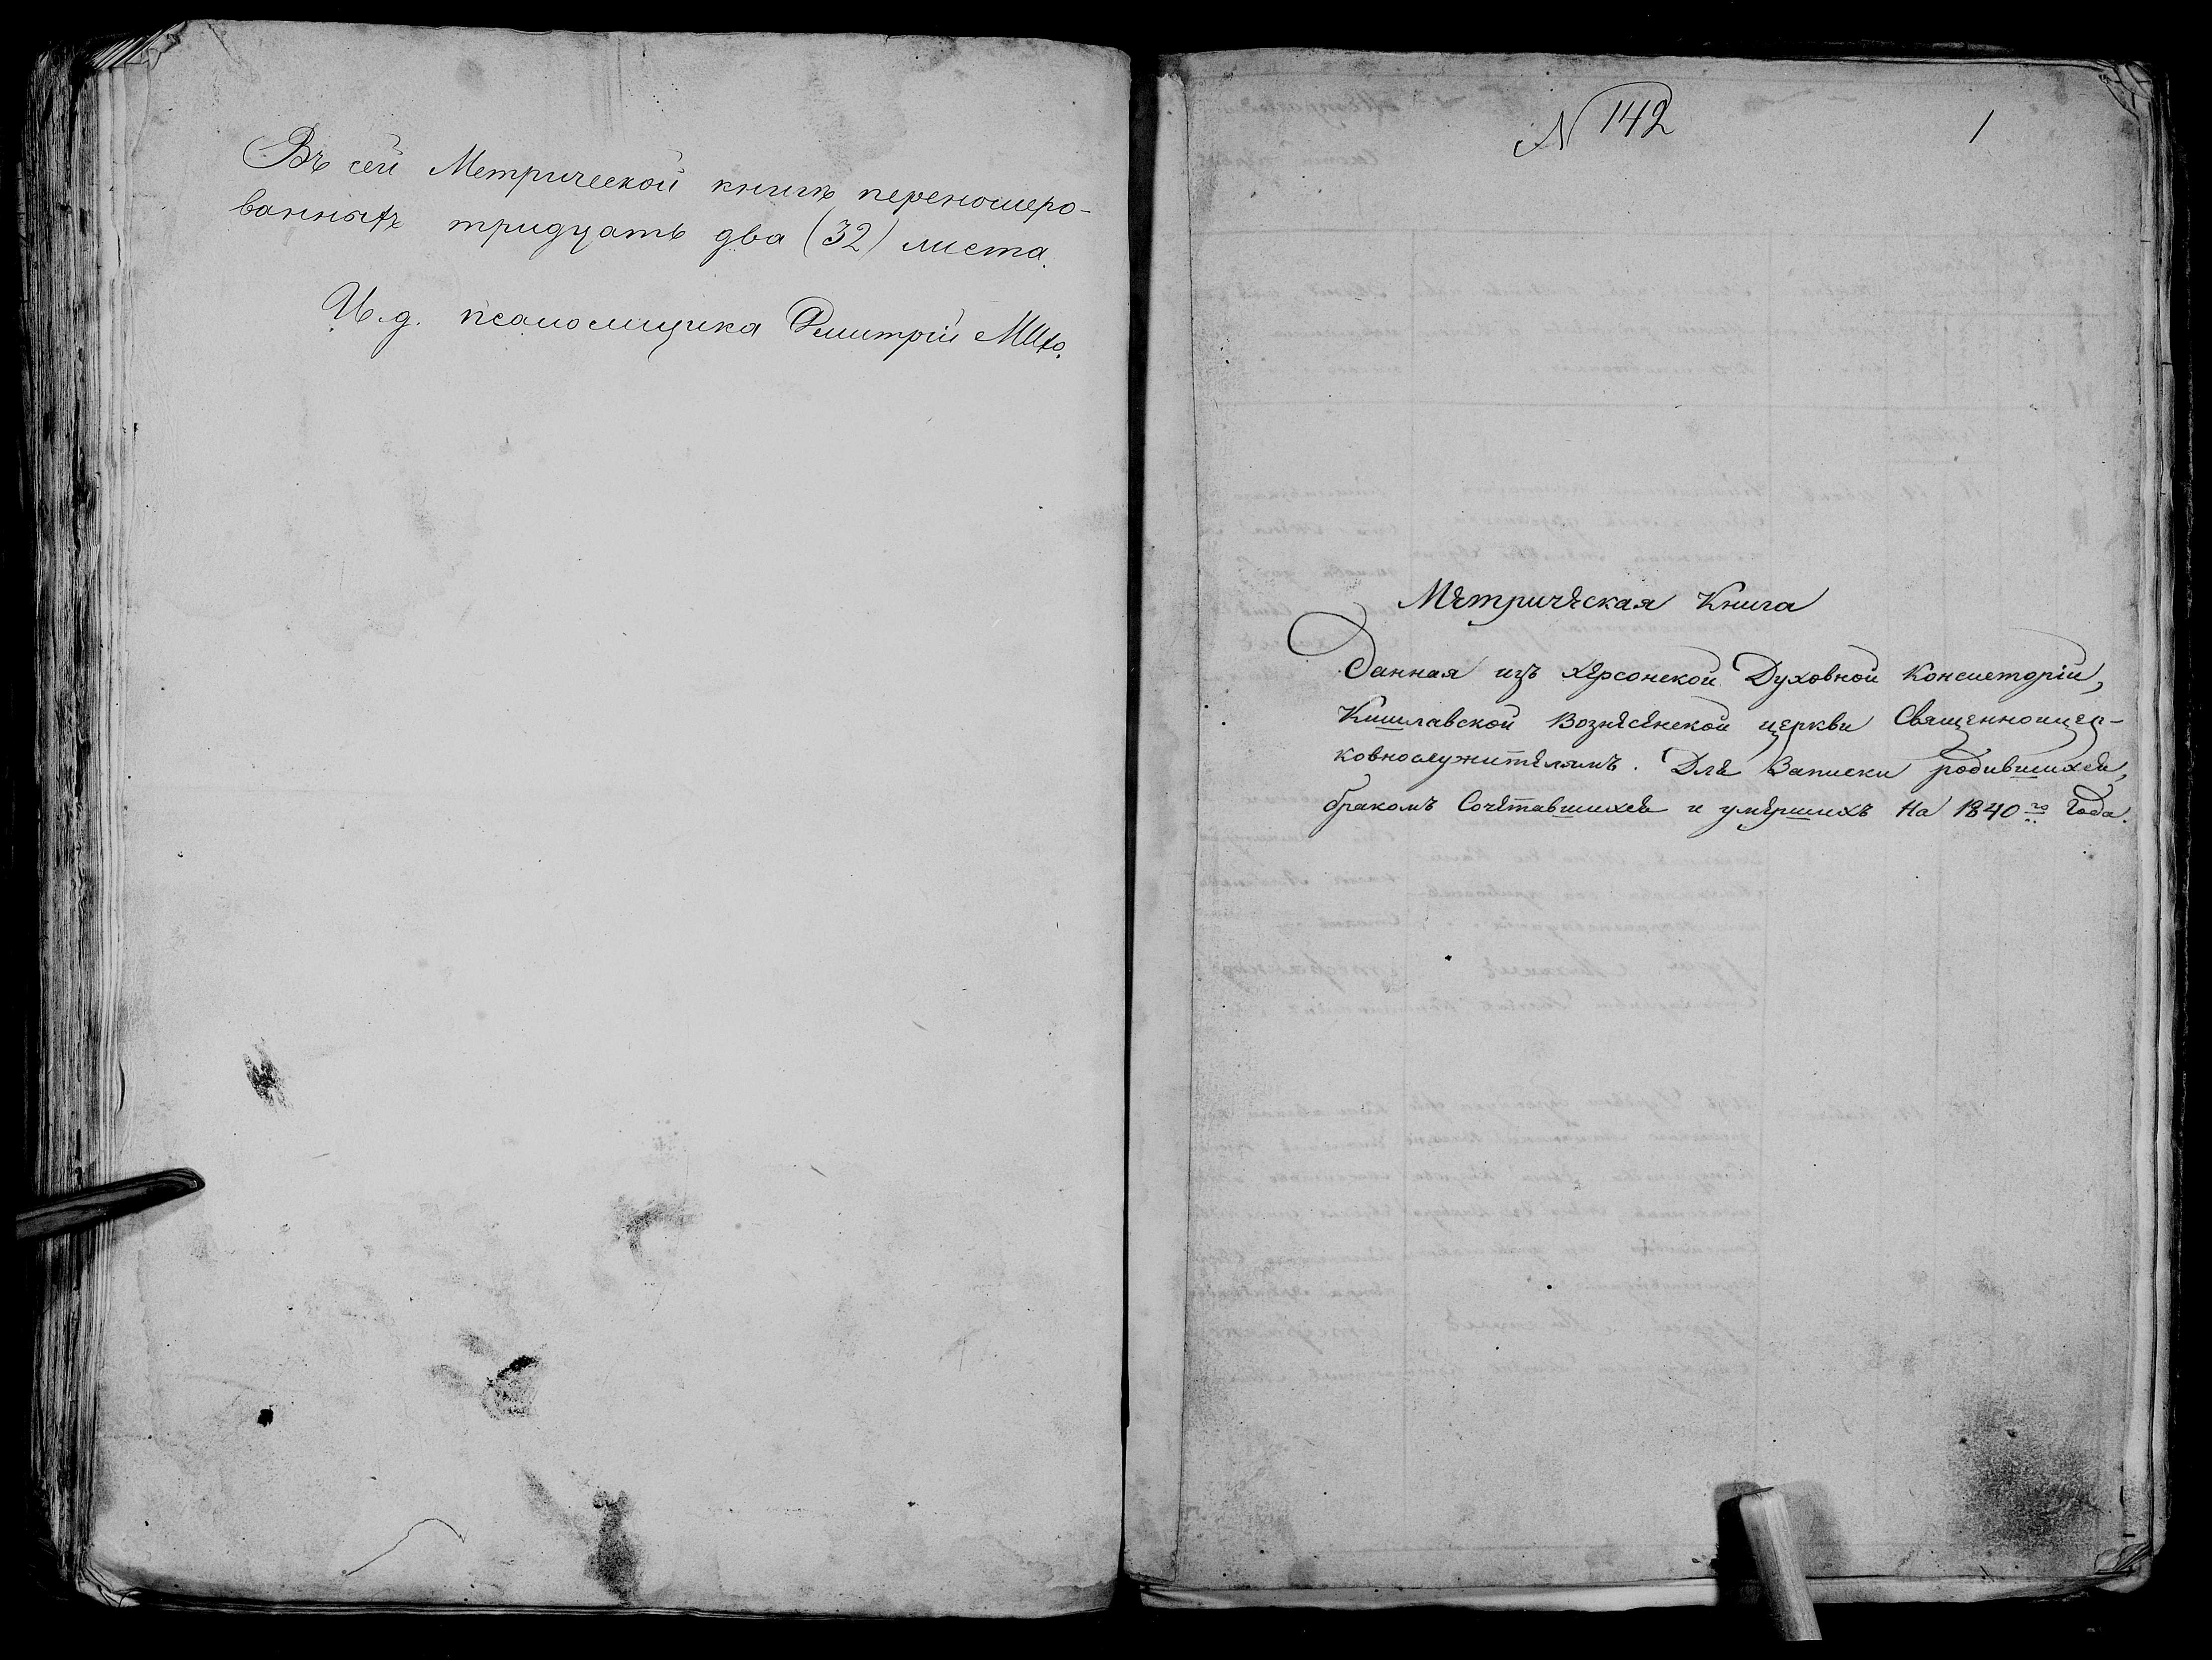 Въ сей Метрической книгѣ переномеро-
ванныхъ тридцать два (32) листа.
И.д. псаломщика Димитрій
N 142
1
Метрическая Книга
Данная изъ Херсонской Духовной Консисторіи,
Кишлавской Вознесенской церкви Священноцер-
ковнослужителямъ. Для Записки родившихся,
бракомъ Сочетавшихся и умершихъ На 1840го Года.